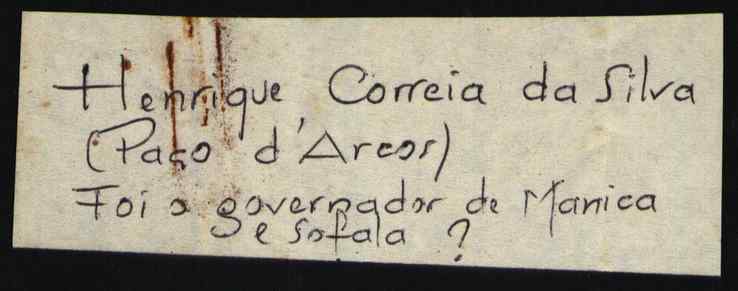 Henrique Correia da Silva
(Paço d'Arcos)
Foi o governador de Manica
e Sofala ?